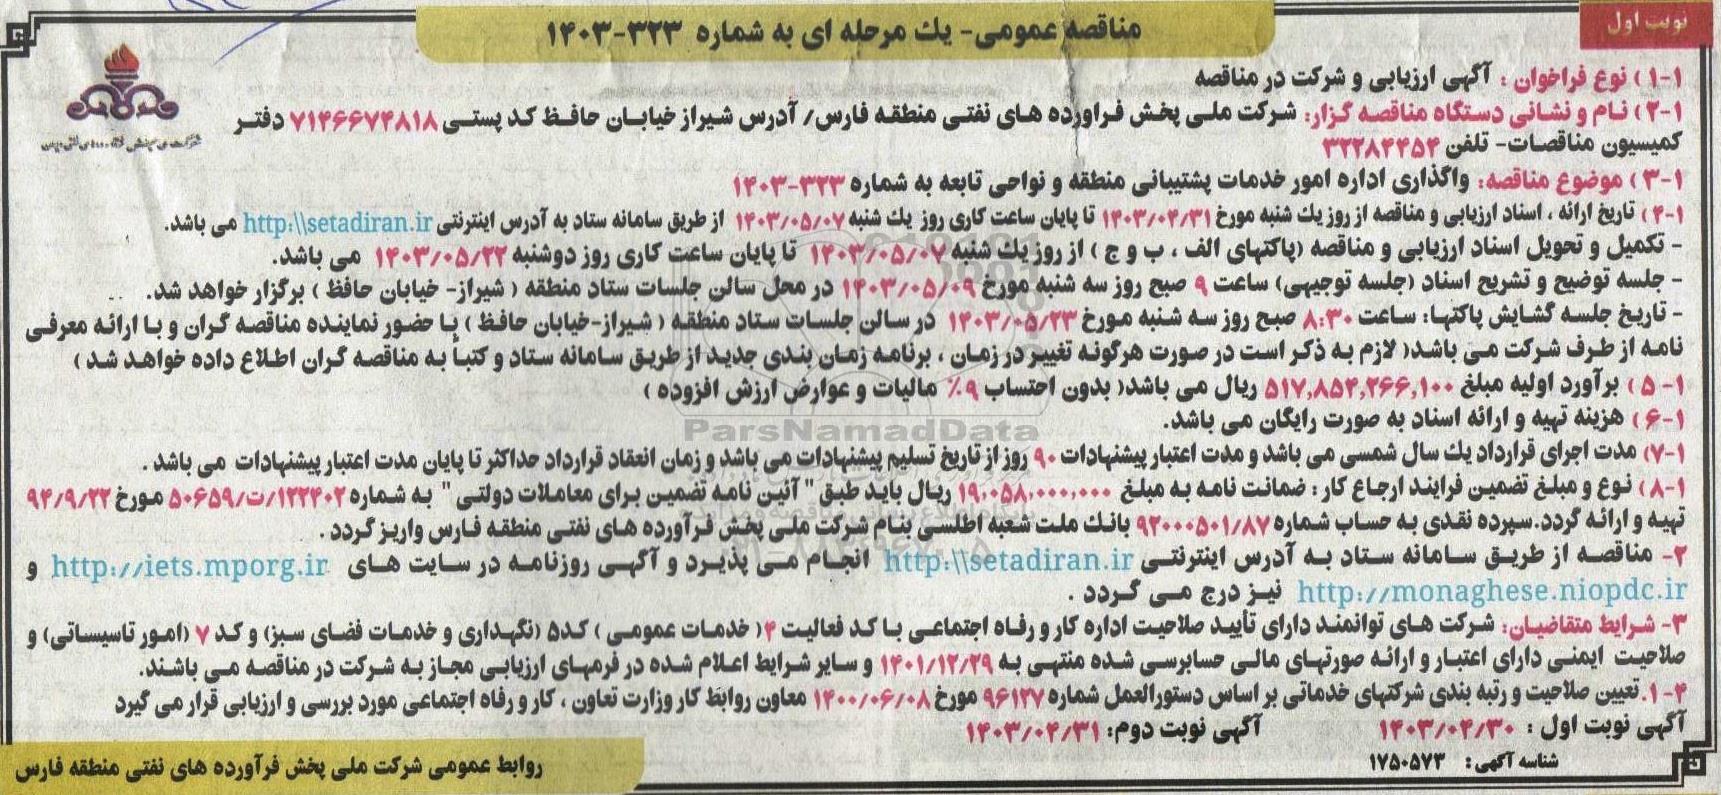 نوبت اول
مناقصه عمومی- یك مرحله ای به شماره ۳۲۳-۱۴۰۳
۱-۱ ) نوع فراخوان : آگهی ارزیابی و شرکت در مناقصه
۲-۱ ) نام و نشانی دستگاه مناقصه گزار: شرکت ملی پخش فراورده های نفتی منطقه فارس/ آدرس شیراز خیابان حافظ کد پستی ۷۱۴۶۶۷۴۸۱۸ دفتر
کمیسیون مناقصات- تلفن ۳۲۲۸۴۴۵۴
۳-۱ ) موضوع مناقصه: واگذاری اداره امور خدمات پشتیبانی منطقه و نواحی تابعه به شماره ۳۲۳-۱۴۰۳
۴-۱ ) تاریخ ارائه ، اسناد ارزیابی و مناقصه از روز یك شنبه مورخ ۱۴۰۳/۰۴/۳۱ تا پایان ساعت کاری روز یك شنبه ۱۴۰۳/۰۵/۰۷ از طریق سامانه ستاد به آدرس اینترنتی http:\\setadiran.ir می باشد.
- تکمیل و تحویل اسناد ارزیابی و مناقصه (پاکتهای الف ، ب و ج ) از روز یك شنبه ۱۴۰۳/۰۵/۰۷ تا پایان ساعت کاری روز دوشنبه ۱۴۰۳/۰۵/۲۲ می باشد.
- جلسه توضیح و تشریح اسناد (جلسه توجیهی) ساعت ۹ صبح روز سه شنبه مورخ ۱۴۰۳/۰۵/۰۹ در محل سالن جلسات ستاد منطقه ( شیراز- خیابان حافظ ) برگزار خواهد شد.
- تاریخ جلسه گشایش پاکتها: ساعت ۸:۳۰ صبح روز سه شنبه مورخ ۱۴۰۳/۰۵/۲۳ در سالن جلسات ستاد منطقه ( شیراز-خیابان حافظ ) با حضور نماینده مناقصه گران و با ارائه معرفی
نامه از طرف شرکت می باشد( لازم به ذکر است در صورت هرگونه تغییر در زمان ، برنامه زمان بندی جدید از طریق سامانه ستاد و کتباً به مناقصه گران اطلاع داده خواهد شد )
۱- ۵ ) برآورد اولیه مبلغ ۵۱۷,۸۵۴,۲۶۶,۱۰۰ ریال می باشد( بدون احتساب ۹٪ مالیات و عوارض ارزش افزوده )
۶-۱ ) هزینه تهیه و ارائه اسناد به صورت رایگان می باشد.
۷-۱) مدت اجرای قرارداد یك سال شمسی می باشد و مدت اعتبار پیشنهادات ۹۰ روز از تاریخ تسلیم پیشنهادات می باشد و زمان انعقاد قرارداد حداکثر تا پایان مدت اعتبار پیشنهادات می باشد .
۸-۱ ) نوع و مبلغ تضمین فرایند ارجاع کار : ضمانت نامه به مبلغ ۱۹,۰۵۸,۰۰۰,۰۰۰ ریال باید طبق " آئین نامه تضمین برای معاملات دولتی " به شماره ۱۲۳۴۰۲/ت/۵۰۶۵۹ مورخ ۹۴/۹/۲۲
تهیه و ارائه گردد.سپرده نقدی به حساب شماره ۹۲۰۰۰۵۰۱/۸۷ بانك ملت شعبه اطلسی بنام شرکت ملی پخش فرآورده های نفتی منطقه فارس واریز گردد .
۲- مناقصه از طریق سامانه ستاد به آدرس اینترنتی http:\\setadiran.ir انجام می پذیرد و آگهی روزنامه در سایت های http://iets.mporg.ir و
http://monaghese.niopdc.ir نیز درج می گردد .
۳- شرایط متقاضیان: شرکت های توانمند دارای تأیید صلاحیت اداره کار و رفاه اجتماعی با کد فعالیت ۴( خدمات عمومی ) کد۵ (نگهداری و خدمات فضای سبز) و کد ۷ (امور تاسیساتی) و
صلاحیت ایمنی دارای اعتبار و ارائه صورتهای مالی حسابرسی شده منتهی به ۱۴۰۱/۱۲/۲۹ و سایر شرایط اعلام شده در فرمهای ارزیابی مجاز به شرکت در مناقصه می باشند.
۴-۱. تعیین صلاحیت و رتبه بندی شرکتهای خدماتی بر اساس دستورالعمل شماره ۹۶۱۲۷ مورخ ۱۴۰۰/۰۶/۰۸ معاون روابط کار وزارت تعاون ، کار و رفاه اجتماعی مورد بررسی و ارزیابی قرار می گیرد
آگهی نوبت اول : ۱۴۰۳/۰۴/۳۰ آگهی نوبت دوم: ۱۴۰۳/۰۴/۳۱
شناسه آگهی: ۱۷۵۰۵۷۳
روابط عمومی شرکت ملی پخش فرآورده های نفتی منطقه فارس
ParsNamadData